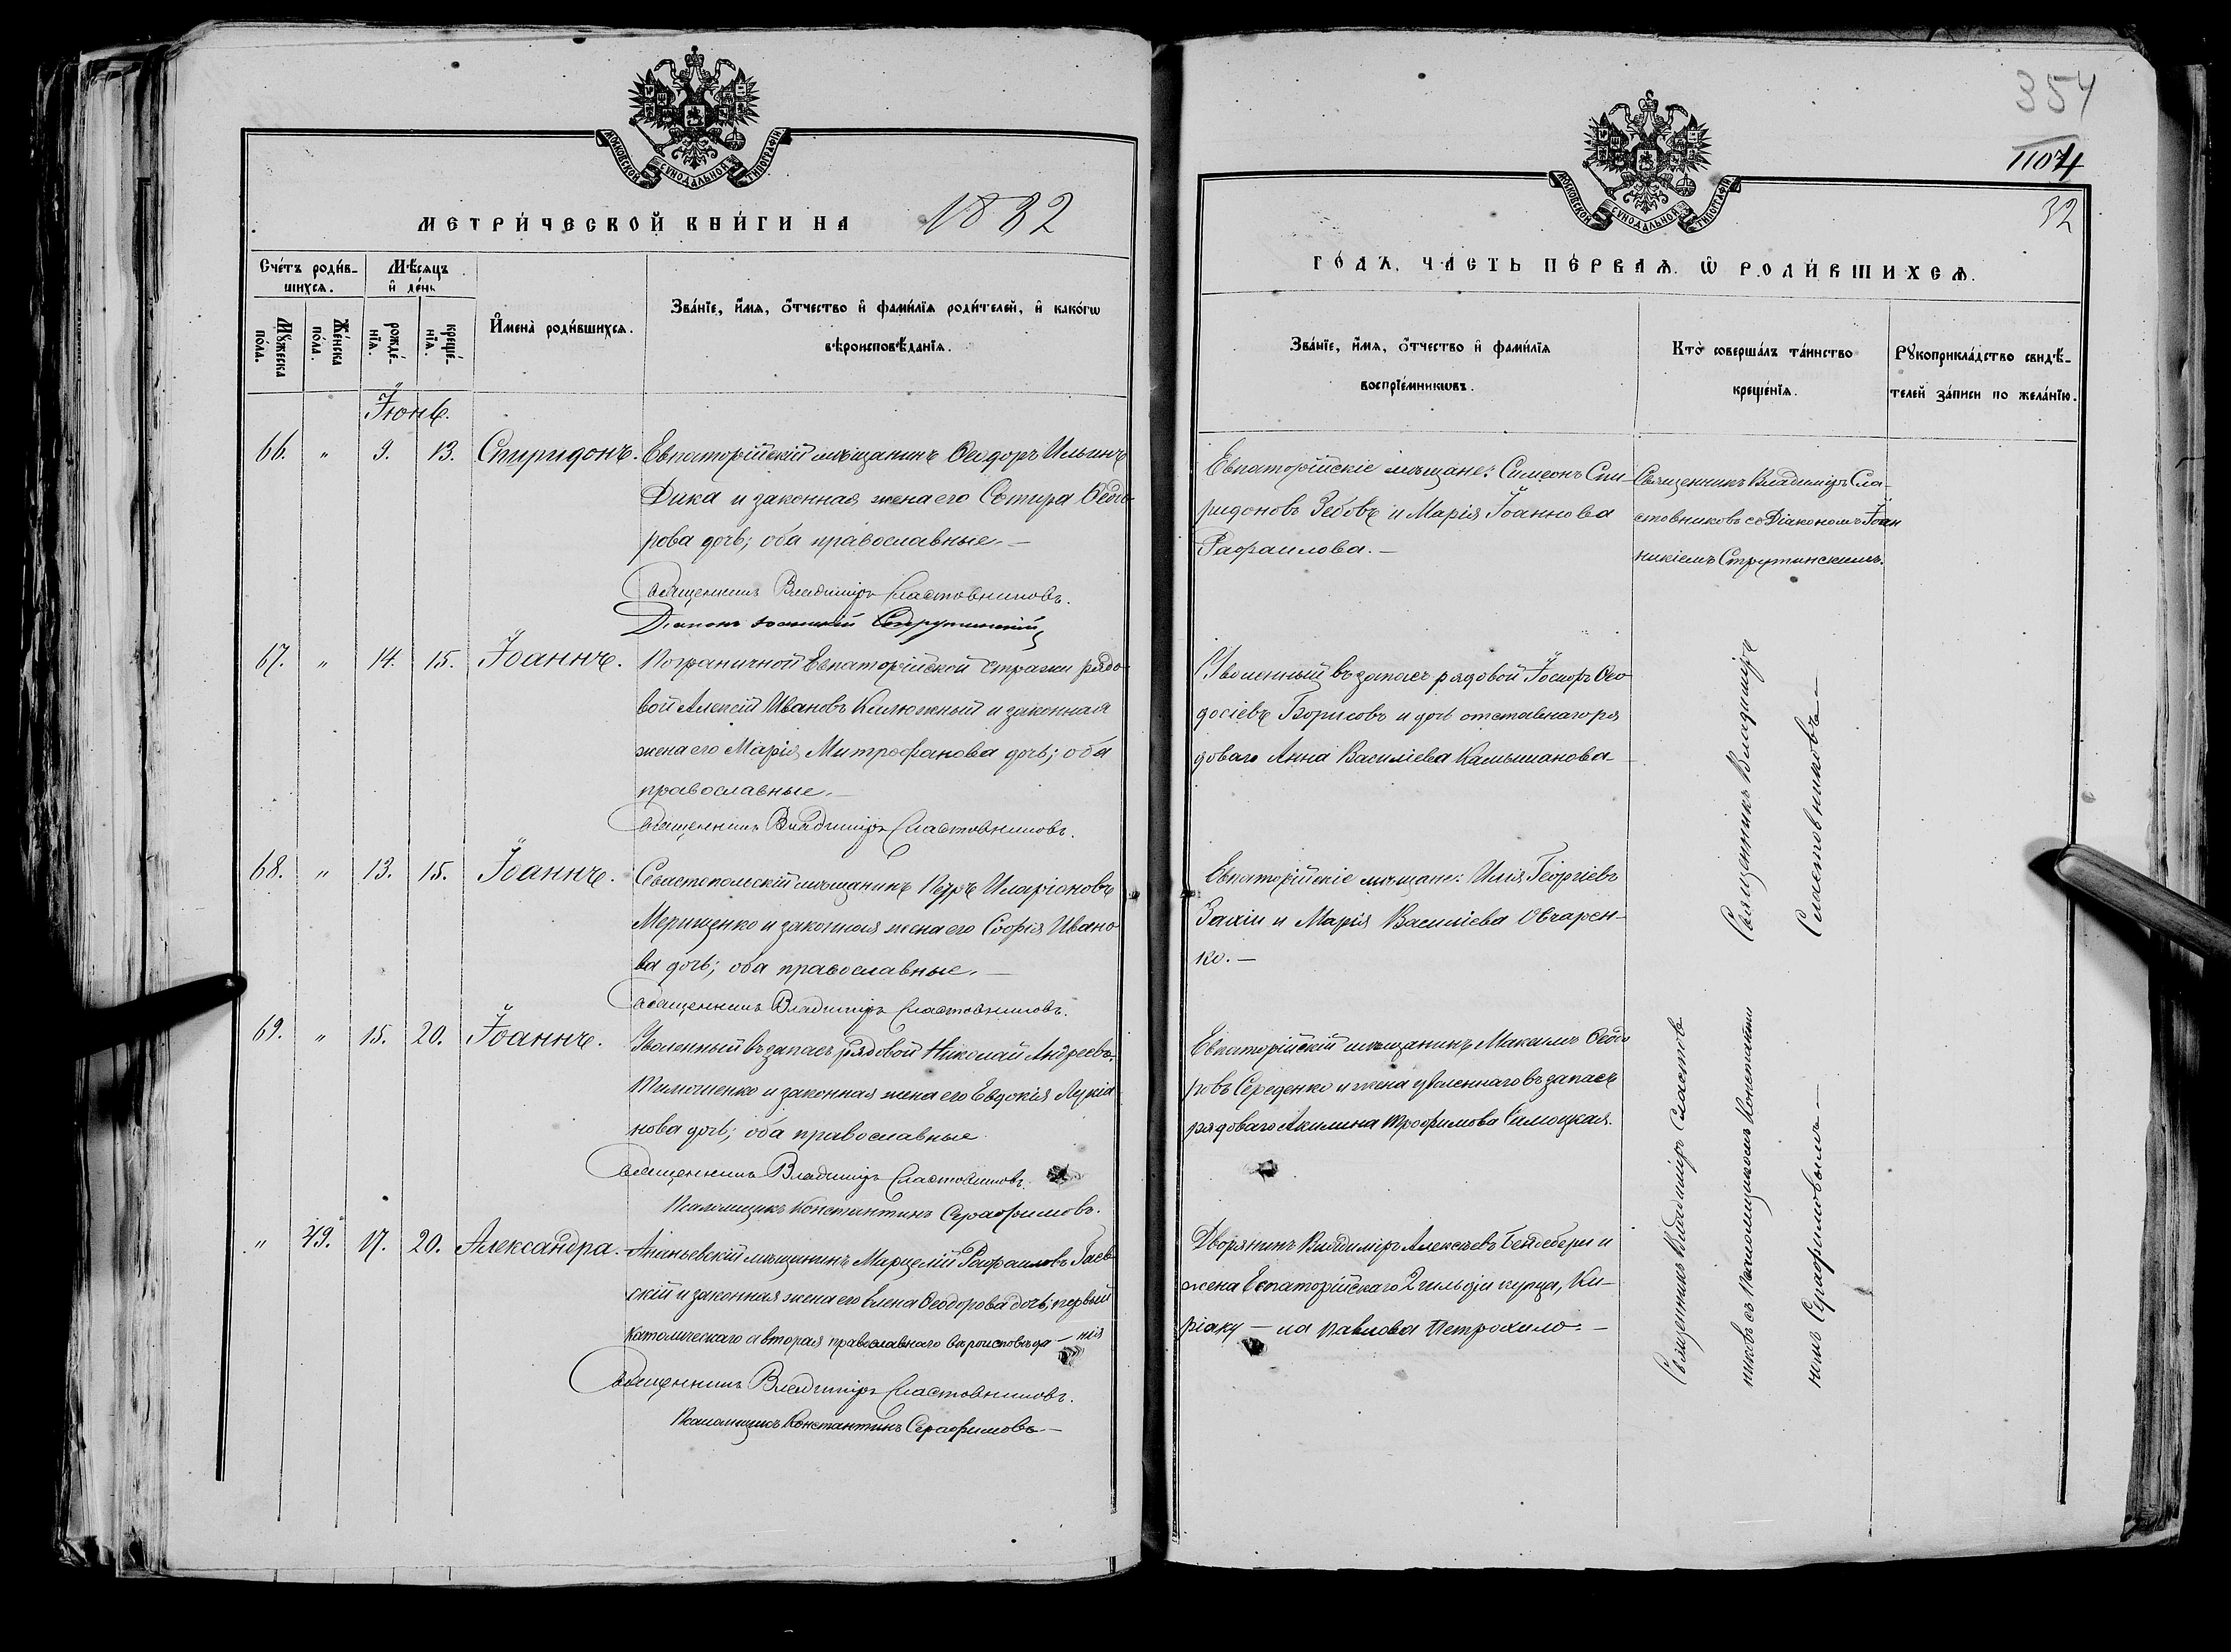 МОСКОВСКОЙ СѴНОДАЛЬНОЙ ТИПОГРАФІИ
МЕТРИ́ЧЕСКОЙ КНИ́ГИ НА 1882
Сче́тъ роди́в-
шихсѧ.
Мѣ́сѧцъ
и҆ де́нь
Мꙋ́жеска
по́ла.
Же́нска
по́ла.
рожде́-
нїѧ.
креще́-
нїѧ.
И҆мена̀ роди́вшихсѧ.
Зва́нїе, и҆́мѧ, ѻ҆́тчество и҆ фами́лїѧ роди́телей, и҆ како́гѡ
вѣроисповѣ́данїѧ.
Іюнь.
66. " 9. 13. Спиридонъ.
Евпаторійскій мѣщанинъ Ѳеодоръ Ильинъ
Дика и законная жена его Сотира Ѳеодо-
рова дочь; оба православные. —
Священникъ Владиміръ Сластовниковъ.
Діаконъ Іоанникій Струтинскій
67. " 14. 15. Іоаннъ.
Пограничной Евпаторійской стражи рядо-
вой Алексій Ивановъ Калюжный и законная
жена его Марія Митрофанова дочь; оба
православные. —
Священникъ Владиміръ Сластовниковъ.
68. " 13. 15. Іоаннъ.
Севастопольскій мѣщанинъ Петръ Иларіоновъ
Мерищенко и законная жена его Софія Ивано-
ва дочь; оба православные. —
Священникъ Владиміръ Сластовниковъ.
69. " 15. 20. Іоаннъ.
Уволенный въ запасъ рядовой Николай Андреевъ
Тимошенко и законная жена его Евдокія Лукіа-
нова дочь; оба православные
Священникъ Владиміръ Сластовниковъ.
Псаломщикъ Константинъ Серафимовъ.
" 49. 17. 20. Александра.
Ананьевскій мѣщанинъ Марцелій Рафаиловъ Гаев-
скій и законная жена его Елена Ѳеодорова дочь; первый
католическаго а вторая православнаго вѣроисповѣда-нія
Священникъ Владиміръ Сластовниковъ.
Псаломщикъ Константинъ Серафимовъ —
354
1104
32
МОСКОВСКОЙ СѴНОДАЛЬНОЙ ТИПОГРАФІИ
ГО́ДЪ, ЧА́СТЬ ПЕ́РВАѦ. Ѡ҆ РОДИ́ВШИХСѦ.
Зва́нїе, и҆́мѧ, ѻ҆́тчество и҆ фами́лїѧ
воспрїе́мникѡвъ.
Кто̀ соверша́лъ та́инство
креще́нїѧ.
Рꙋкоприкла́дство свидѣ́-
телей за́писи по жела́нїю.
Евпаторійскіе мѣщане: Симеонъ Спи-
ридоновъ Зебовъ и Марія Іоаннова
Рафаилова. —
Священникъ Владиміръ Сла-
стовниковъ съ Діакономъ Іоан
никіемъ Струтинскимъ.
Уволенный въ запасъ рядовой Іосифъ Ѳео-
досіевъ Борисовъ и дочь отставнаго ря
доваго Анна Василіева Камышанова
Евпаторійскіе мѣщане: Илія Георгіевъ
Захіи и Марія Василіева Овчарен-
ко. —
Священникъ Владиміръ
Сластовниковъ —
Евпаторійскій мѣщанинъ Максимъ Ѳеодо
ровъ Середенко и жена уволеннаго въ запасъ
рядоваго Акилина Трофимова Силоцкая.
Дворянинъ Владиміръ Алексѣевъ Бендебери и
жена Евпаторійскаго 2 гильдіи купца, Ки-
ріаку — ла Павлова Петрохило. —
Священникъ Владиміръ Сластов
никовъ съ Псаломщикомъ Константи
номъ Серафимовымъ —